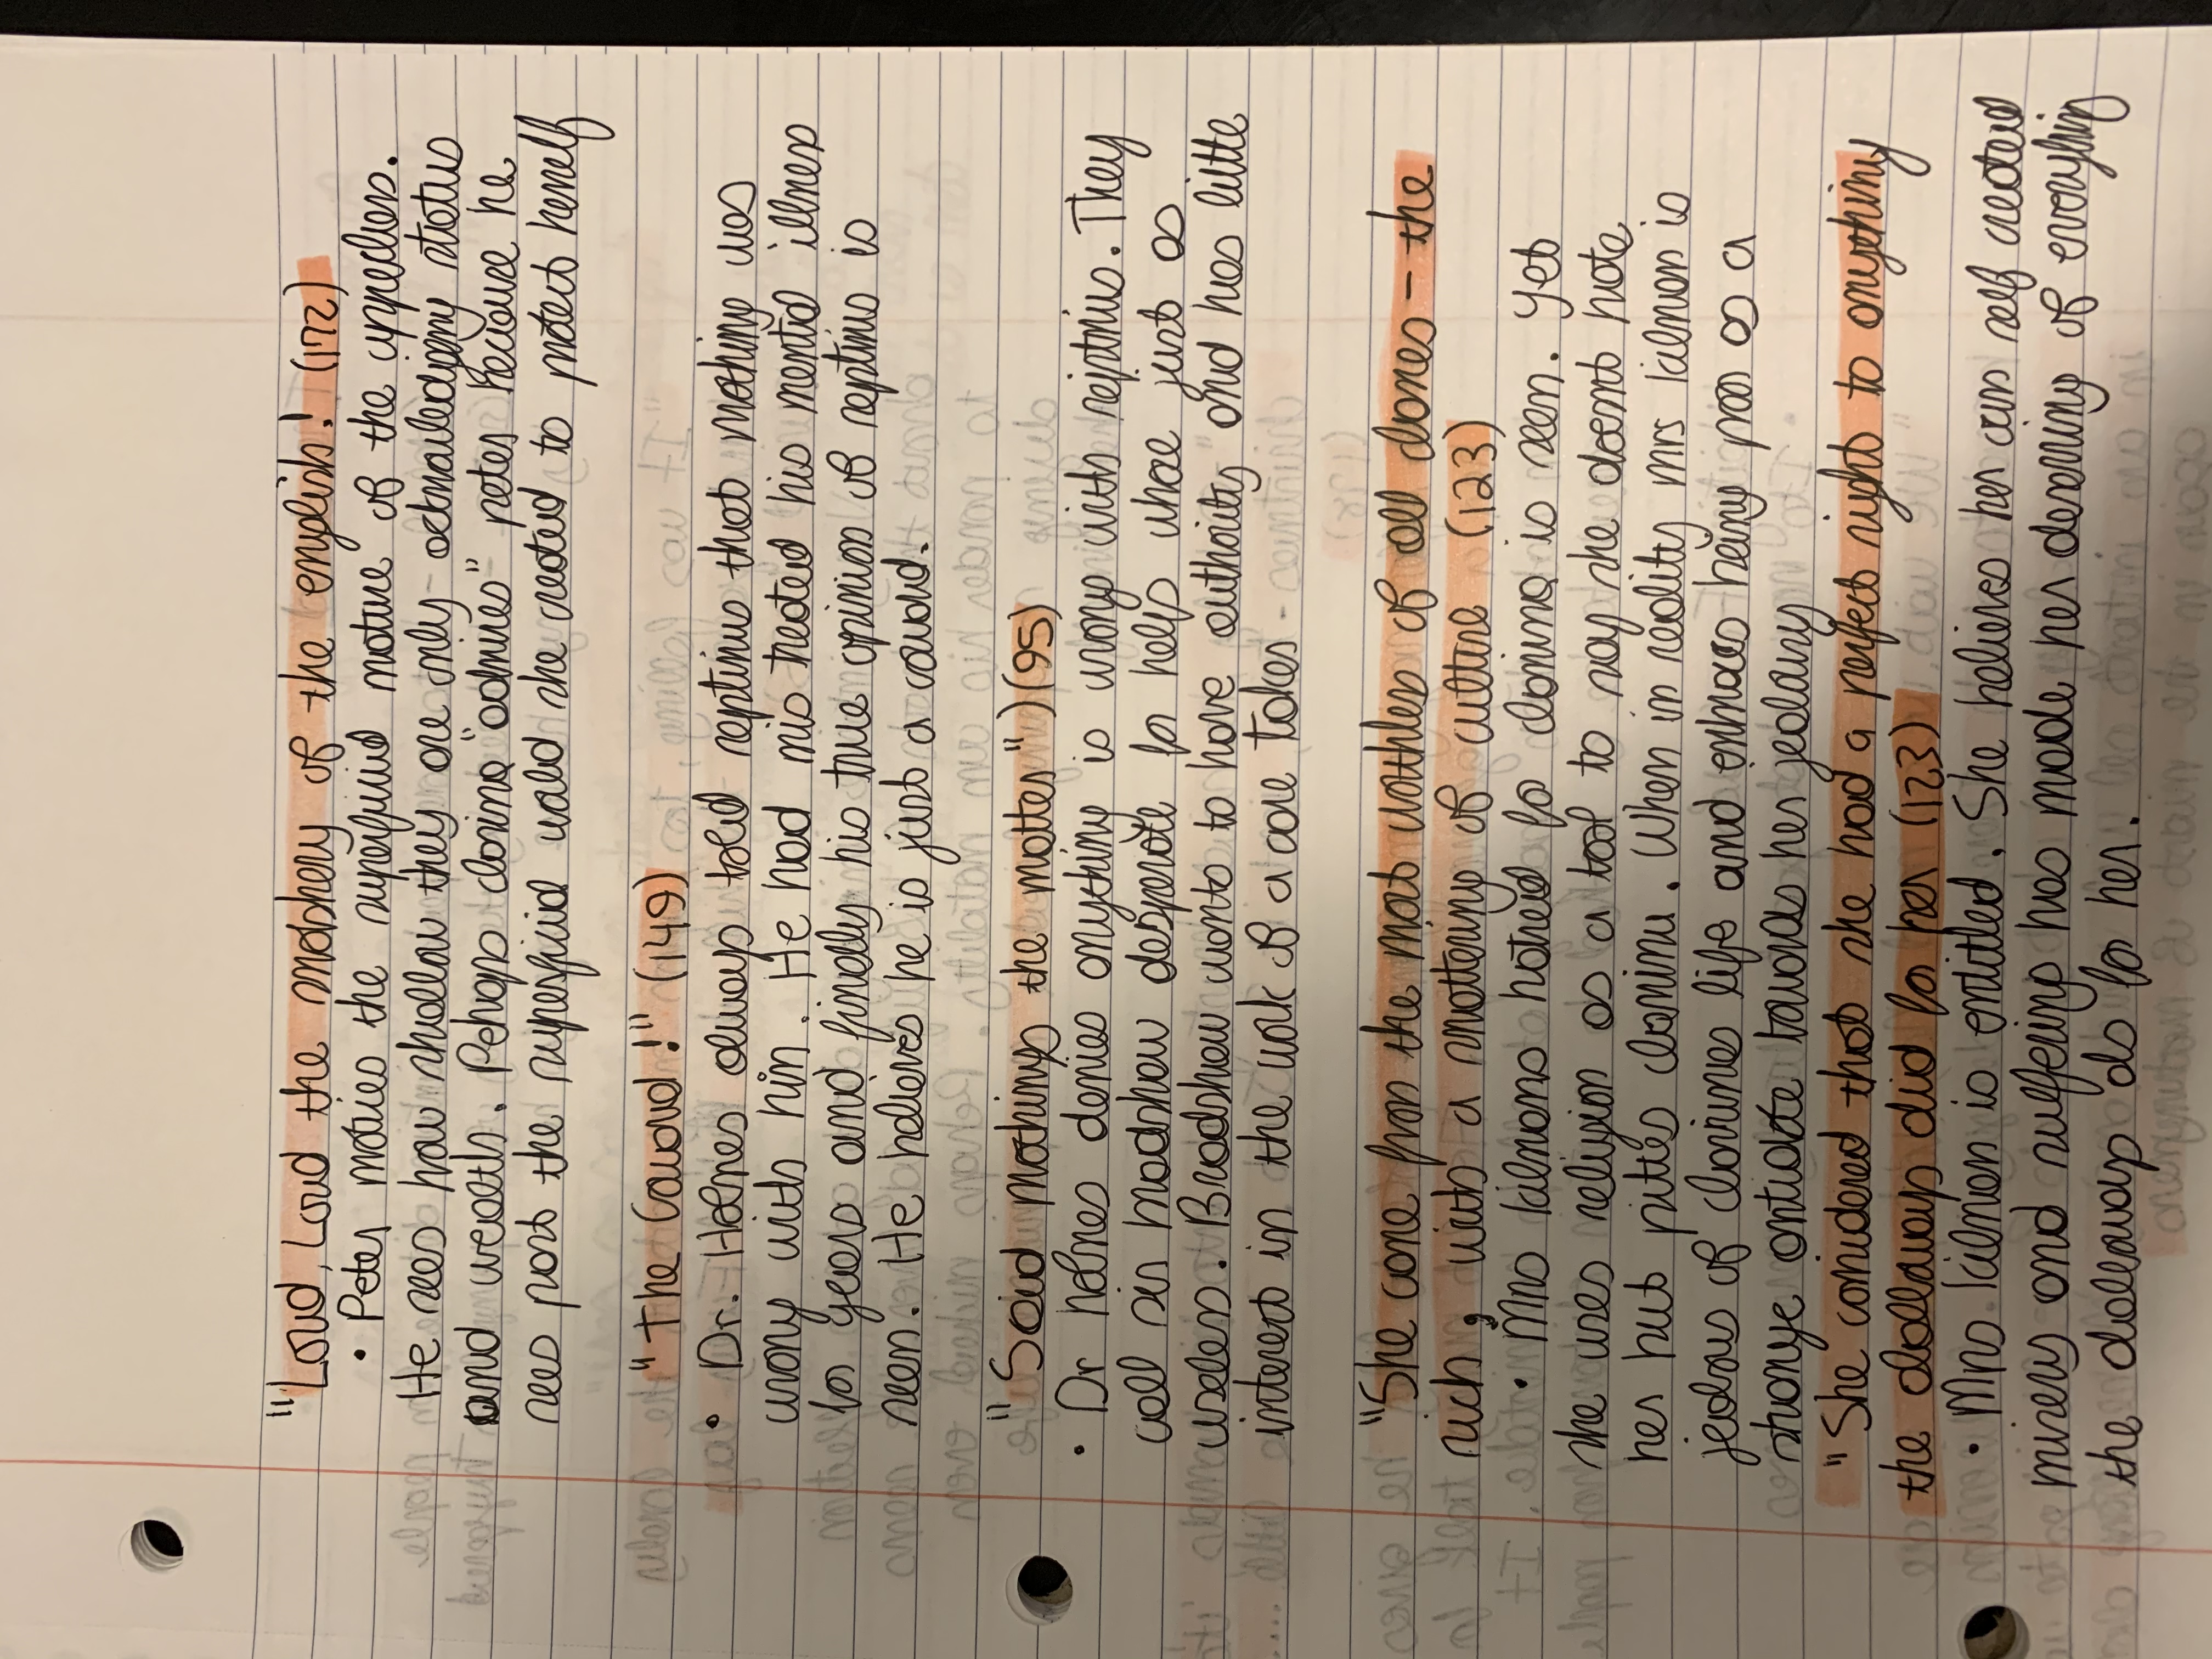 "Loud, Loud the snobbery of the english! (172)
• Peter notices the superficial nature of the upperclass.
He sees how shallow they are only acknowledging status
and wealth. Pehaps clarissa "admires" peter because he
sees past the superficial world she created to protect herself
"The Coward!" (149)
• Dr. Holmes always told septimus that nothing was
wrong with him. He had mis treated his mental illness
for years and finally his true opinion of septimus is
seen. He believes he is just a coward.
"Said nothings the matter") (95)
• Dr holmes denies anything is wrong with septimus. They
call sir bradshaw desperate for help whose just as
useless. Bradshaw wants to have authority and has little
interest in the work of a care takes
"She came from the most worthless of all classes - the
rich, with a smattering of culture (123)
• Mrs kilmans hatred for clarissa is seen. Yet
she uses religion as a tool to say she doesnt hate
her but pitties clarissa. When in reality mrs kilman is
jealous of clarissas life and embraces being poor as a
strange antidote towards her jealousy
"She considered that she had a perfect right to anything
the dalloways did for her (123)
• Mrs kilman is entitled. She believes her own self created
misery and suffering has made her deserving of everything
the dalloways do for her.